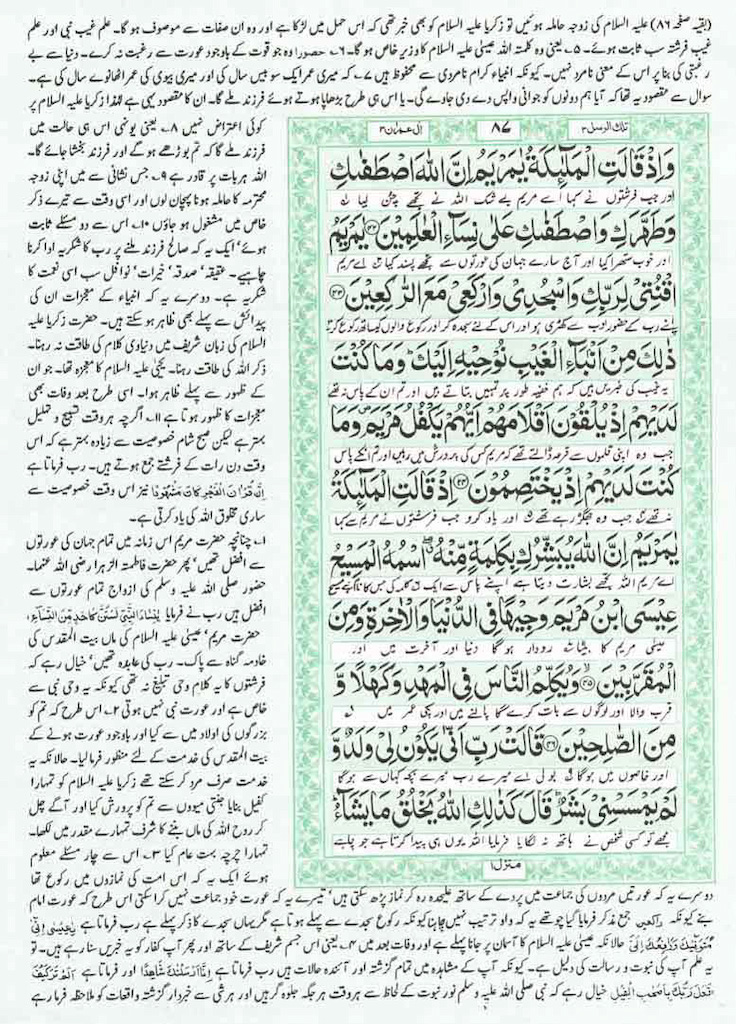 (بقیہ صفحہ ۸۶) علیہ السلام کی زوجہ حاملہ ہوئیں تو زکریا علیہ السلام کو بھی خبر تھی کہ اس حمل میں لڑکا ہے اور وہ ان صفات سے موصوف ہو گا۔ علم غیب نبی اور علم
غیب فرشتہ سب ثابت ہوئے۔ ۵۔ یعنی وہ کلمتہ اللہ عیسیٰ علیہ السلام کا وزیر خاص ہو گا۔ ۶۔ حصورا وہ جو قوت کے باوجود عورت سے رغبت نہ کرے۔ دنیا سے بے
رغبتی کی بنا پر اس کے معنی نامرد نہیں۔ کیونکہ انبیاء کرام نامردی سے محفوظ ہیں ۷۔ کہ میری عمر ایک سو بیس سال کی اور میری بیوی کی عمر اٹھانوے سال کی ہے۔
سوال سے مقصود یہ تھا کہ آیا ہم دونوں کو جوانی واپس دے دی جاوے گی۔ یا اس ہی طرح بڑھاپا ہوتے ہوئے فرزند ملے گا۔ ان کا مقصود یہی ہے لہٰذا زکریا علیہ السلام پر
کوئی اعتراض نہیں ۸۔ یعنی یونہی اس ہی حالت میں
فرزند ملے گا کہ تم بوڑھے ہو گے اور فرزند بخشا جائے گا۔
اللہ ہر بات پر قادر ہے ۹۔ جس نشانی سے میں اپنی زوجہ
محترمہ کا حاملہ ہونا پہچان لوں اور اسی وقت سے تیرے ذکر
خاص میں مشغول ہو جاؤں ۱۰۔ اس سے دو مسئلے ثابت
ہوئے' ایک یہ کہ صالح فرزند ملنے پر رب کا شکریہ ادا کرنا
چاہیے۔ عقیقہ' صدقہ' خیرات' نوافل سب اسی نعمت کا
شکریہ ہے۔ دوسرے یہ کہ انبیاء کے معجزات ان کی
پیدائش سے پہلے بھی ظاہر ہو سکتے ہیں۔ حضرت زکریا علیہ
السلام کی زبان شریف میں دنیاوی کلام کی طاقت نہ رہنا۔
ذکر اللہ کی طاقت رہنا۔ یحییٰ علیہ السلام کا معجزہ تھا۔ جو ان
کے ظہور سے پہلے ظاہر ہوا۔ اسی طرح بعد وفات بھی
معجزات کا ظہور ہوتا ہے ۱۱۔ اگرچہ ہر وقت تسبیح و تہلیل
بہتر ہے لیکن صبح شام خصوصیت سے زیادہ بہتر ہے کہ اس
وقت دن رات کے فرشتے جمع ہوتے ہیں۔ رب فرماتا ہے
اِنَّ قُرْاٰنَ الْفَجْرِ كَانَ مَشْهُوْدًا نیز اس وقت خصوصیت سے
ساری مخلوق اللہ کی یاد کرتی ہے۔
۱۔ چنانچہ حضرت مریم اس زمانہ میں تمام جہان کی عورتوں
سے افضل تھیں' پھر حضرت فاطمتہ الزہرا رضی اللہ عنہا۔
حضور صلی اللہ علیہ وسلم کی ازواج تمام عورتوں سے
افضل ہیں رب نے فرمایا يٰنِسَآءَ النَّبِيِّ لَسْتُنَّ كَاَحَدٍ مِّنَ النِّسَآءِ،
حضرت مریم' عیسیٰ علیہ السلام کی ماں بیت المقدس کی
خادمہ گناہ سے پاک۔ رب کی عابدہ تھیں' خیال رہے کہ
فرشتوں کا یہ کلام وحی تبلیغ نہ تھی کیونکہ یہ وحی نبی سے
خاص ہے اور عورت نبی نہیں ہوتی ۲۔ اس طرح کہ تم کو
بزرگوں کی اولاد میں سے کیا اور باوجود عورت ہونے کے
بیت المقدس کی خدمت کے لئے منظور فرمالیا۔ حالانکہ یہ
خدمت صرف مرد کر سکتے تھے زکریا علیہ السلام کو تمہارا
کفیل بنایا جنتی میووں سے تم کو پرورش کیا اور آگے چل
کر روح اللہ کی ماں بننے کا شرف تمہارے مقدر میں لکھا۔
تمہارا چرچہ بہت عام کیا ۳۔ اس سے چار مسئلے معلوم
ہوئے ایک یہ کہ اس امت کی نمازوں میں رکوع تھا
تلك الرسل ۳
۸۷
اٰل عمران ۳
وَاِذْ قَالَتِ الْمَلٰٓئِكَةُ يٰمَرْيَمُ اِنَّ اللّٰهَ اصْطَفٰىكِ
اور جب فرشتوں نے کہا اے مریم بے شک اللہ نے تجھے چن لیا
وَطَهَّرَكِ وَاصْطَفٰىكِ عَلٰى نِسَآءِ الْعٰلَمِيْنَ ۴۲ يٰمَرْيَمُ
اور خوب ستھرا کیا اور آج سارے جہان کی عورتوں سے تجھے پسند کیا اے مریم
اقْنُتِيْ لِرَبِّكِ وَاسْجُدِيْ وَارْكَعِيْ مَعَ الرّٰكِعِيْنَ ۴۳
اپنے رب کے حضور ادب سے کھڑی ہو اور اس کے لئے سجدہ کر اور رکوع والوں کے ساتھ رکوع کر
ذٰلِكَ مِنْ اَنْۢبَآءِ الْغَيْبِ نُوْحِيْهِ اِلَيْكَ ؕ وَمَا كُنْتَ
یہ غیب کی خبریں ہیں کہ ہم خفیہ طور پر تمہیں بتاتے ہیں اور تم ان کے پاس نہ تھے
لَدَيْهِمْ اِذْ يُلْقُوْنَ اَقْلَامَهُمْ اَيُّهُمْ يَكْفُلُ مَرْيَمَ ۪ وَمَا
جب وہ اپنی قلموں سے قرعہ ڈالتے تھے کہ مریم کس کی پرورش میں رہیں اور تم انکے پاس
كُنْتَ لَدَيْهِمْ اِذْ يَخْتَصِمُوْنَ ۴۴ اِذْ قَالَتِ الْمَلٰٓئِكَةُ
نہ تھے جب وہ جھگڑ رہے تھے اور یاد کرو جب فرشتوں نے مریم سے کہا
يٰمَرْيَمُ اِنَّ اللّٰهَ يُبَشِّرُكِ بِكَلِمَةٍ مِّنْهُ ۖ اسْمُهُ الْمَسِيْحُ
اے مریم اللہ تجھے بشارت دیتا ہے اپنے پاس سے ایک کلمہ کی جس کا نام ہے مسیح
عِيْسَى ابْنُ مَرْيَمَ وَجِيْهًا فِى الدُّنْيَا وَالْاٰخِرَةِ وَمِنَ
عیسٰی مریم کا بیٹا رودار ہوگا دنیا اور آخرت میں اور
الْمُقَرَّبِيْنَ ۴۵ وَيُكَلِّمُ النَّاسَ فِى الْمَهْدِ وَكَهْلًا وَّ
قرب والا اور لوگوں سے بات کرے گا پالنے میں اور پکی عمر میں
مِنَ الصّٰلِحِيْنَ ۴۶ قَالَتْ رَبِّ اَنّٰى يَكُوْنُ لِيْ وَلَدٌ وَّ
اور خاصوں میں ہوگا بولی اے میرے رب میرے بچہ کہاں سے ہوگا
لَمْ يَمْسَسْنِيْ بَشَرٌ ؕ قَالَ كَذٰلِكِ اللّٰهُ يَخْلُقُ مَا يَشَآءُ
مجھے تو کسی شخص نے ہاتھ نہ لگایا فرمایا اللہ یوں ہی پیدا کرتا ہے جو چاہے
منزل ۱
دوسرے یہ کہ عورتیں مردوں کی جماعت میں پردے کے ساتھ علیحدہ رہ کر نماز پڑھ سکتی ہیں' تیسرے یہ کہ عورت خود جماعت نہیں کرا سکتی اس طرح کہ عورت امام
بنے کیونکہ راکعین جمع مذکر فرمایا گیا چوتھے یہ کہ واو ترتیب نہیں چاہتا کیونکہ رکوع سجدے سے پہلے ہوتا ہے مگر یہاں سجدے کا ذکر پہلے ہے رب فرماتا ہے يٰعِيْسٰى اِنِّيْ
مُتَوَفِّيْكَ وَرَافِعُكَ اِلَيَّ حالانکہ عیسیٰ علیہ السلام کا آسمان پر جانا پہلے ہے اور وفات بعد میں ۴۔ یعنی اس جسم شریف کے ساتھ اور پھر آپ کفار کو یہ خبریں سنا رہے ہیں۔ تو
یہ علم آپ کی نبوت و رسالت کی دلیل ہے۔ کیونکہ آپ کے مشاہدہ میں تمام گزشتہ اور آئندہ حالات ہیں رب فرماتا ہے اِنَّا اَرْسَلْنٰكَ شَاهِدًا اور فرماتا ہے اَلَمْ تَرَ كَيْفَ
فَعَلَ رَبُّكَ بِاَصْحٰبِ الْفِيْلِ خیال رہے کہ نبی صلی اللہ علیہ وسلم نور نبوت کے لحاظ سے ہر وقت ہر جگہ جلوہ گر ہیں اور ہر شی سے خبردار گزشتہ واقعات کو ملاحظہ فرما رہے